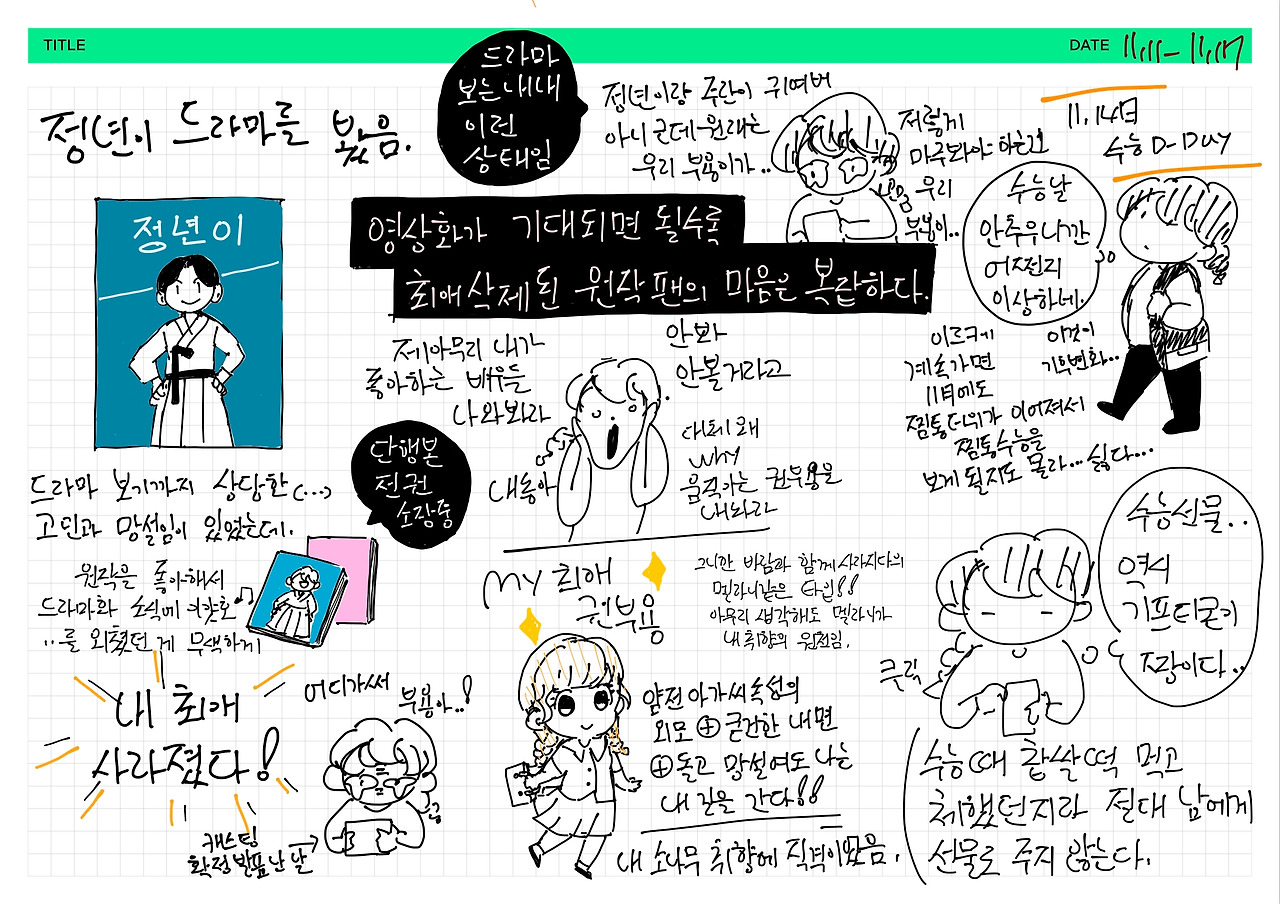 TITLE
DATE 11.11 - 11.17
정년이 드라마를 봤음.
정년이
드라마 보기까지 상당한(...)
고민과 망설임이 있었는데.
원작을 좋아해서
드라마화 소식에 이얏호♪♫
..를 외쳤던 게 무색하게
내 최애
사라졌다!
어디갔써
부용아..!
캐스팅
확정 발표 난 날
드라마
보는 내내
이런
상태임
정년이랑 주란이 귀여버
아니 근데 원래는
우리 부용이가..
저렇게
마주봐야하는건
우리
부용이..
영상화가 기대되면 될수록
최애 삭제된 원작팬의 마음은 복잡하다.
제아무리 내가
좋아하는 배우들
나와봐라
안봐
안볼거라고
내동아
대체 왜
why
움직이는 권부용을
내놔라
단행본
전권
소장중
my 최애
권부용
그니깐 바람과 함께 사라지다의
멜라니같은 타입!!
아무리 생각해도 멜라니가
내 취향의 원천임.
얌전 아가씨 속성의
외모 ⊕ 굳건한 내면
⊕ 돌고 망설여도 나는
내 길을 간다!!
내 소나무 취향에 직격이었음.
11.14日
수능 D-DAY
수능날
안추우니깐
어쩐지
이상하네.
이르케
계속가면
11月에도
찜통더위가 이어져서
찜통수능을
보게 될지도 몰라... 싫다...
이것이
기후변화..
수능선물..
역시
기프티콘이
조장이다..
클릭
수능때 찹쌀떡 먹고
체했던지라 절대 남에게
선물로 주지 않는다.